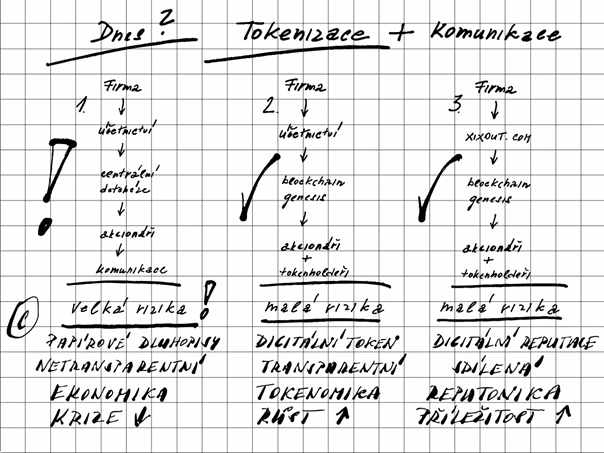 Dnes? Tokenizace + Komunikace
1. Firma
účetnictví
centrální
databáze
akcionáři
komunikace
velká rizika !
PAPÍROVÉ DLUHOPISY
NETRANSPARENTNÍ
EKONOMIKA
KRIZE ↓
2. Firma
účetnictví
blockchain
genesis
akcionáři
+
tokenholdeři
malá rizika
DIGITÁLNÍ TOKEN
TRANSPARENTNÍ
TOKENOMIKA
RŮST ↑
3. Firma
XIXOUT.COM
blockchain
genesis
akcionáři
+
tokenholdeři
malá rizika
DIGITÁLNÍ REPUTACE
SDÍLENÁ
REPUTONIKA
PŘÍLEŽITOST ↑